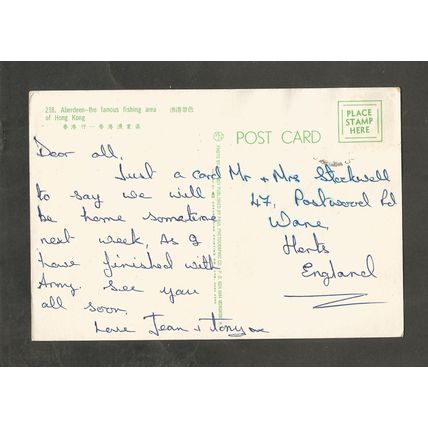 218. Aberdeen—the famous fishing area
of Hong Kong
POST CARD
PLACE
STAMP
HERE
Dear all,
Just a card
to say we will
be home sometime
next week, As I
have finished with
Army. See you
all soon,
Love Jean + Tony
Mr + Mrs Stockwell
47, Postwood Rd
Ware,
Herts
England